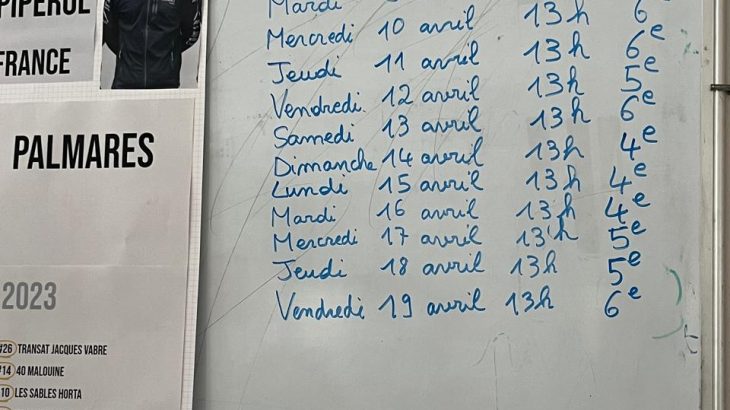 PIPEROL
FRANCE
PALMARES
2023
#26 TRANSAT JACQUES VABRE
#14 40 MALOUINE
10 LES SABLES HORTA
Mardi
Mercredi 10 avril 13h 6e
Jeudi 11 avril 13h 6e
Vendredi 12 avril 13h 5e
Samedi 13 avril 13h 6e
Dimanche 14 avril 13h 4e
Lundi 15 avril 13h 4e
Mardi 16 avril 13h 4e
Mercredi 17 avril 13h 5e
Jeudi 18 avril 13h 5e
Vendredi 19 avril 13h 6e